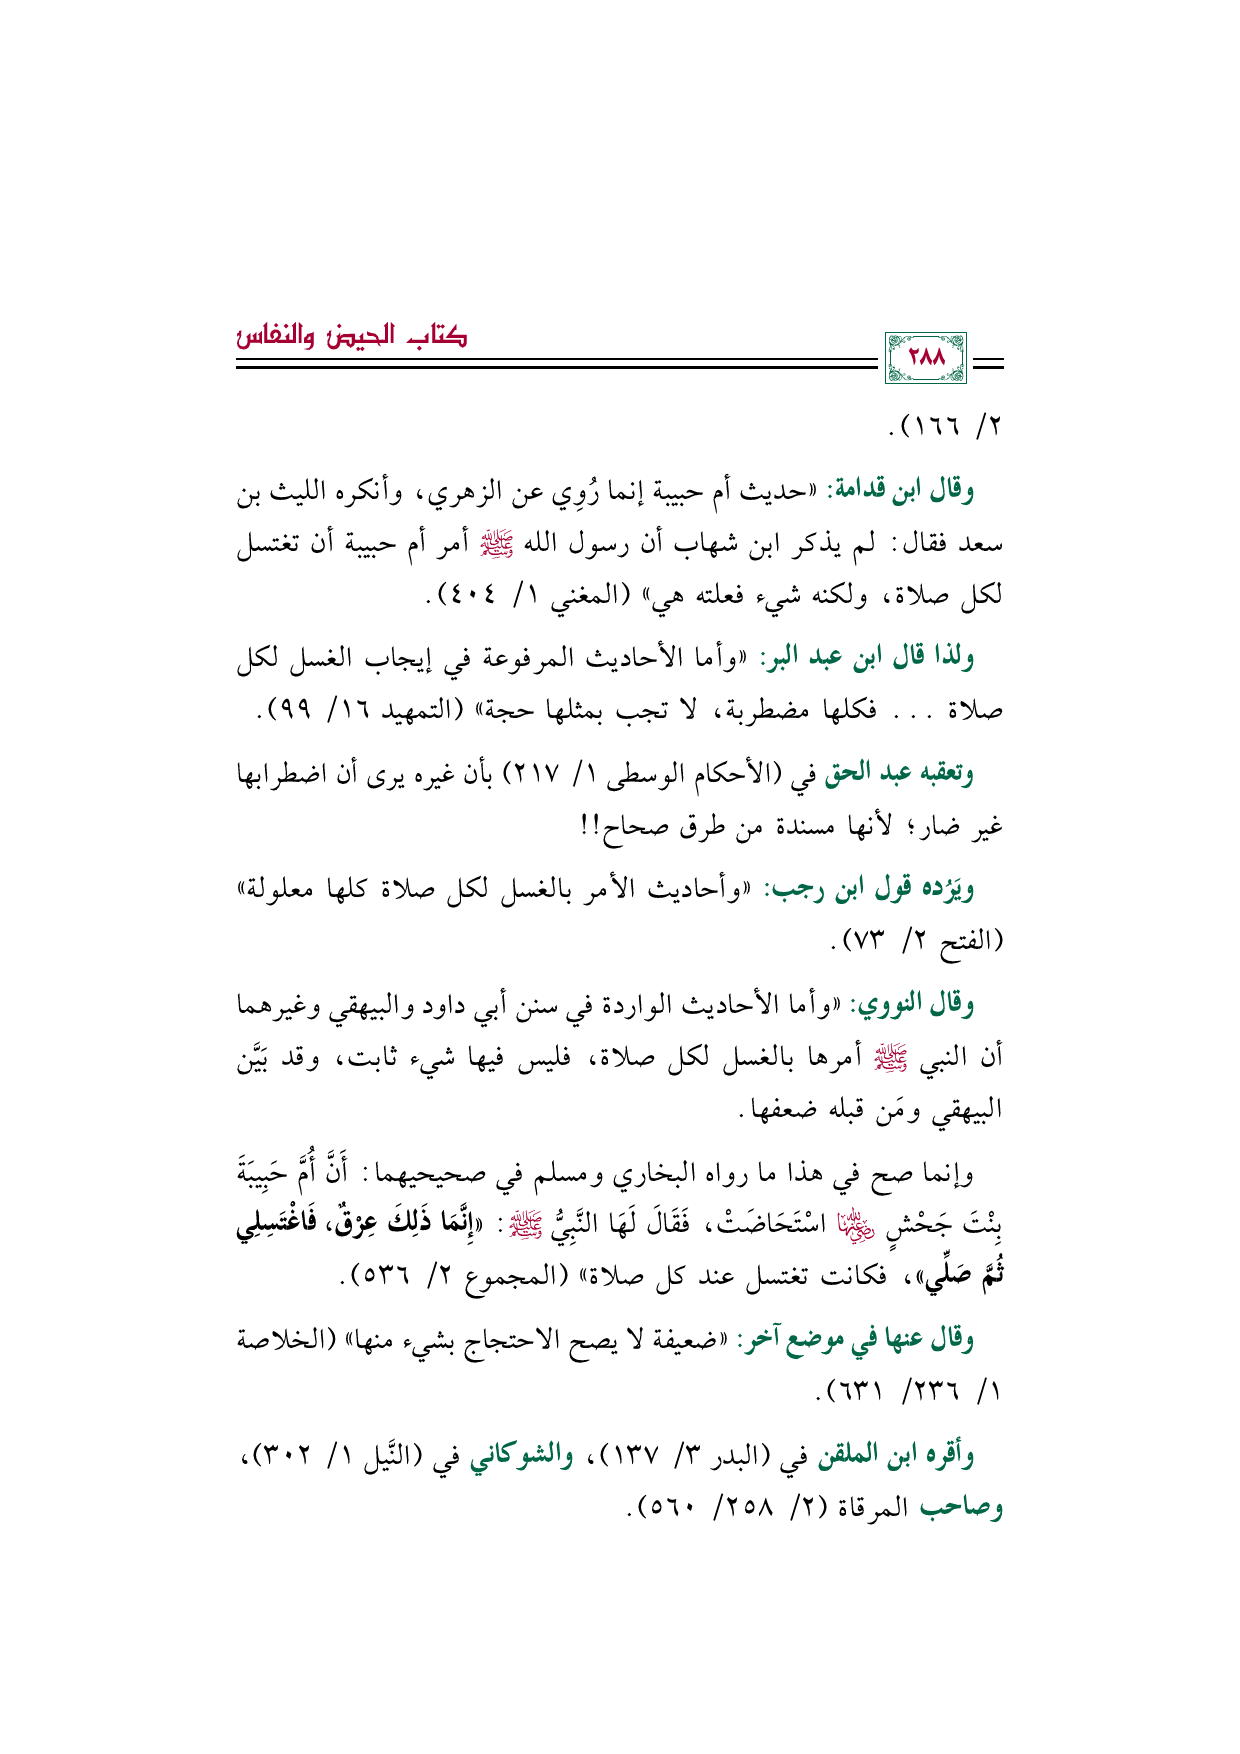 كتاب الحيض والنفاس
٢٨٨
٢/ ١٦٦).
وقال ابن قدامة: «حديث أم حبيبة إنما رُوِي عن الزهري، وأنكره الليث بن
سعد فقال: لم يذكر ابن شهاب أن رسول الله ﷺ أمر أم حبيبة أن تغتسل
لكل صلاة، ولكنه شيء فعلته هي» (المغني ١/ ٤٠٤).
ولذا قال ابن عبد البر: «وأما الأحاديث المرفوعة في إيجاب الغسل لكل
صلاة ... فكلها مضطربة، لا تجب بمثلها حجة» (التمهيد ١٦/ ٩٩).
وتعقبه عبد الحق في (الأحكام الوسطى ١/ ٢١٧) بأن غيره يرى أن اضطرابها
غير ضار؛ لأنها مسندة من طرق صحاح!!
ويَرُده قول ابن رجب: «وأحاديث الأمر بالغسل لكل صلاة كلها معلولة»
(الفتح ٢/ ٧٣).
وقال النووي: «وأما الأحاديث الواردة في سنن أبي داود والبيهقي وغيرهما
أن النبي ﷺ أمرها بالغسل لكل صلاة، فليس فيها شيء ثابت، وقد بَيَّن
البيهقي ومَن قبله ضعفها.
وإنما صح في هذا ما رواه البخاري ومسلم في صحيحيهما: أَنَّ أُمَّ حَبِيبَةَ
بِنْتَ جَحْشٍ رضي الله عنها اسْتَحَاضَتْ، فَقَالَ لَهَا النَّبِيُّ ﷺ: «إِنَّمَا ذَلِكَ عِرْقٌ، فَاغْتَسِلِي
ثُمَّ صَلِّي»، فكانت تغتسل عند كل صلاة» (المجموع ٢/ ٥٣٦).
وقال عنها في موضع آخر: «ضعيفة لا يصح الاحتجاج بشيء منها» (الخلاصة
١/ ٢٣٦/ ٦٣١).
وأقره ابن الملقن في (البدر ٣/ ١٣٧)، والشوكاني في (النَّيل ١/ ٣٠٢)،
وصاحب المرقاة (٢/ ٢٥٨/ ٥٦٠).